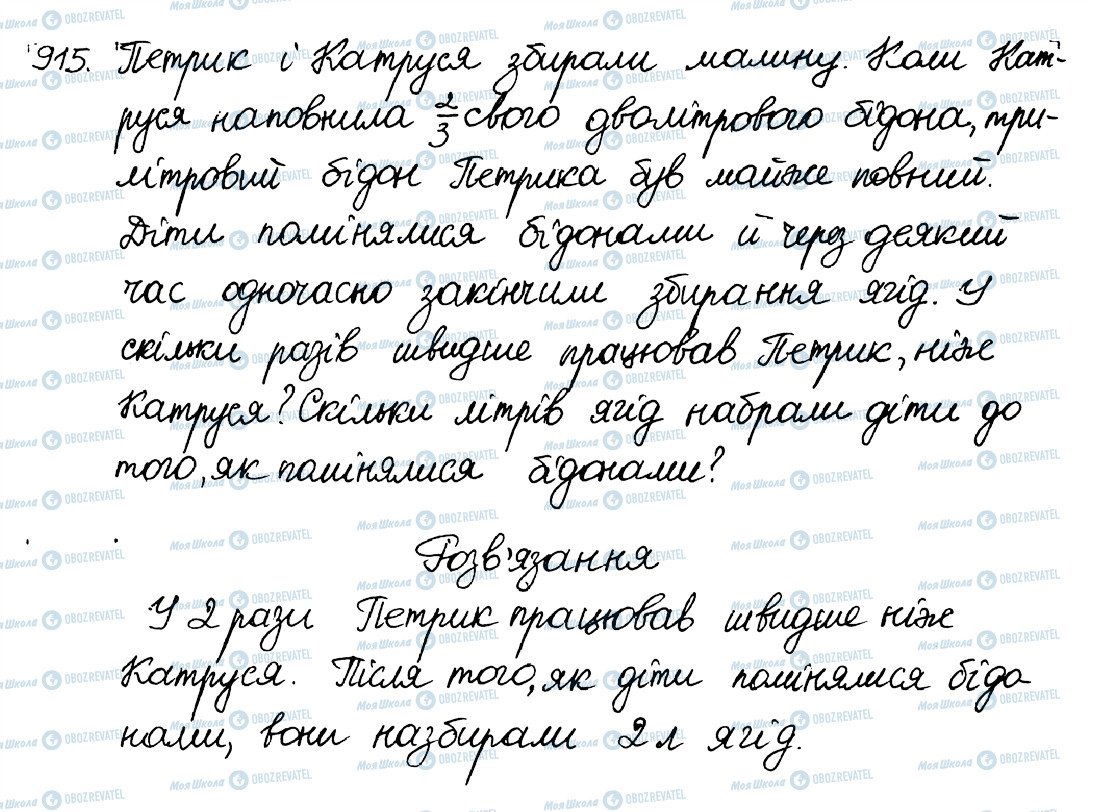 915. Петрик і Катруся збирали малину. Коли Кат-
руся наповнила 2/3 свого дволітрового бідона, три-
літровий бідон Петрика був майже повний.
Діти помінялися бідонами й через деякий
час одночасно закінчили збирання ягід. У
скільки разів швидше працював Петрик, ніже
Катруся? Скільки літрів ягід набрали діти до
того, як помінялися бідонами?
Розв'язання
У 2 рази Петрик працював швидше ніже
Катруся. Після того, як діти помінялися бідо
нами, вони назбирали 2 л ягід.